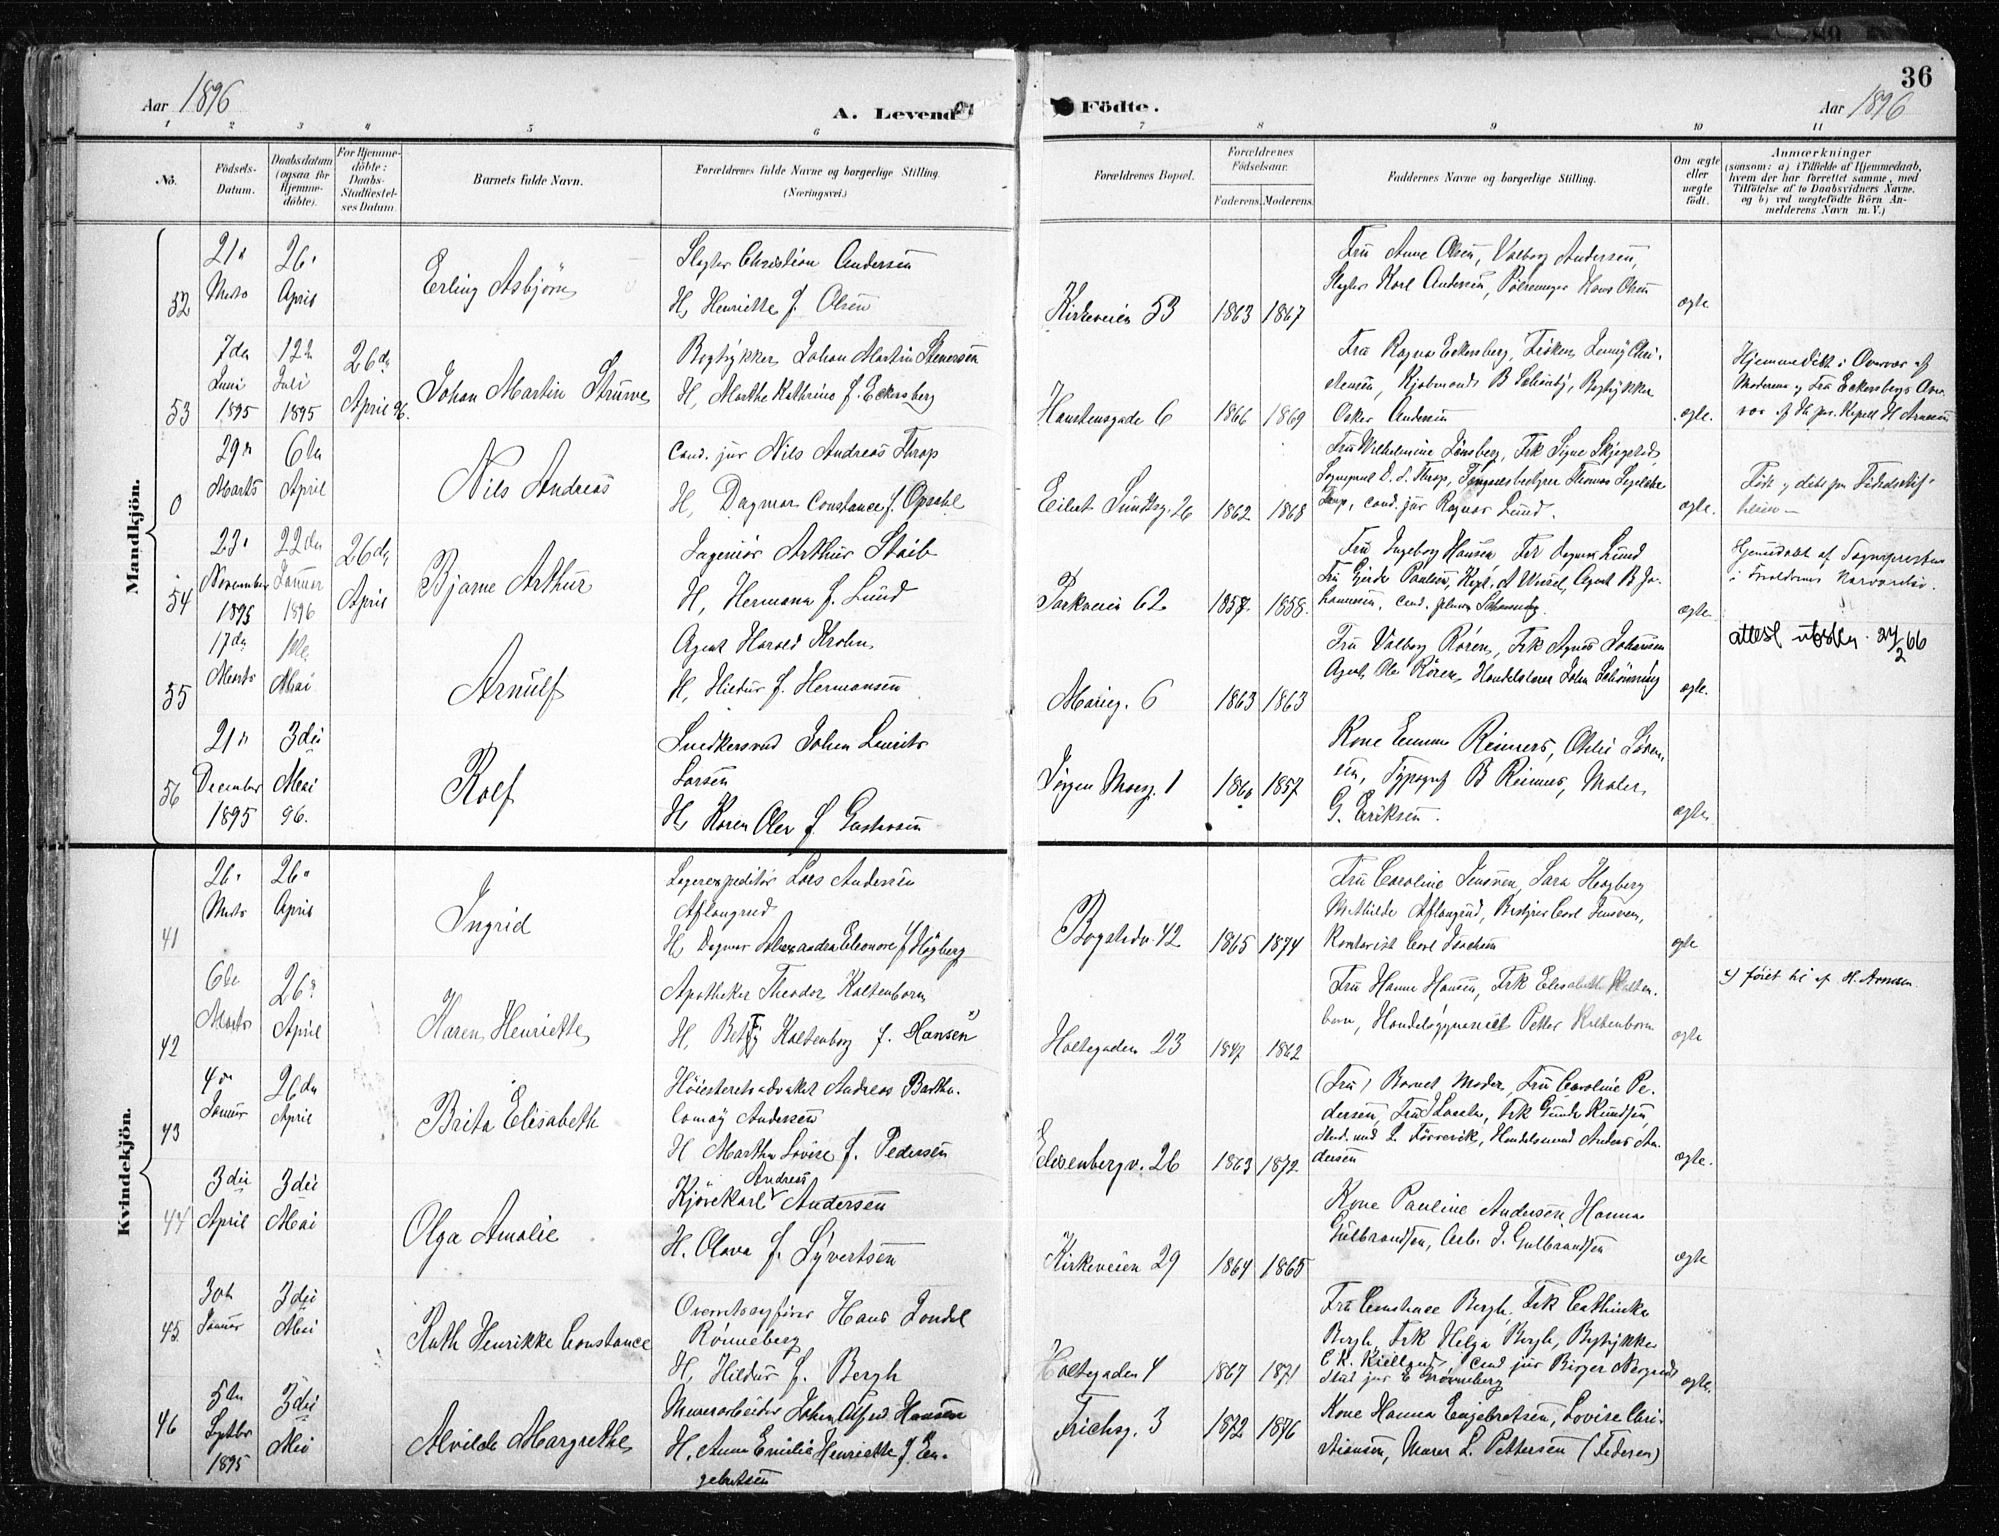 36
Aar 1896
A. Levende Födte.
Aar 1896
1 2 3 4 5 6 7 8 9 10 11
No.
Födsels-Datum.
Daabsdatum (ogsaa for Hjemme-döbte).
For Hjemme-döbte: Daabs-Stadfæstel-ses Datum.
Barnets fulde Navn.
Forældrenes fulde Navne og borgerlige Stilling. (Næringsvei.)
Forældrenes Bopæl.
Forældrenes Födselsaar.
Faderens. Moderens.
Faddernes Navne og borgerlige Stilling.
Om ægte eller uægte födt.
Anmærkninger
(saasom: a) i Tilfælde af Hjemmedaab, hvem der har forrettet samme, med Tilföielse af to Daabsvidners Navne, og b) ved uægtefödte Börn An-melderens Navn m. V.)
Mandkjön.
52
21
Marts
26
April
Erling Asbjørn
Slagter Christian Andersen
H, Henriette f. Olsen
Kirkeveien 53
1863
1867
Fru Anne Olsen, Valborg Andersen,
Slagter Karl Andersen, Pølsemager Hans Olsen
ægte
53
7de
Juni
1895
12
Juli
1895
26de
April 96.
Johan Martin Struwe
Bogtrykker Johan Martin Stenersen
H, Marthe Kathrine f. Eckersberg
Hanstensgade 6
1866
1869
Fru Ragna Eckersberg, Frøken Jenny Chri-
stensen, Kjøbmand B Schanby, Bogtrykker
Oskar Andersen
ægte.
Hjemmedøbt i Overvær af
Moderen og Fru Eckersberg
0
29
Marts
6te
April
Nils Andreas
Cand. jur Nils Andreas Thrap
H, Dagmar Constance f. Opsahl
Eilert Sundtsg. 26
1862
1868
Fru Wilhelmine Lønsberg, Frk Signe
Sogneprest D. S. Thrap,
cand. jur Ragnar Lund.
ægte.
Født og døbt paa Fødselsstif-
telsen
54
23
November
1895
22de
Januar
1896
26de
April
Bjarne Arthur
Ingeniør Arthur Staib
H, Hermana f. Lund
Parkveien 62
1857.
1858.
Fru Ingeborg Hansen, Frk Dagmar Lund
Fru Gerda Paulsen, Kapt. A Wessel, Agent B Jo-
hannesen, cand. Schønning.
ægte
Hjemmedøbt af Sognepresten
i Forældrenes Nærværelse.
55
17de
Marts
1ste
Mai
Arnulf
Agent Harald Krohn
H, Hildur f. Hermansen
Marieg. 6
1863
1863
Fru Valborg Røren, Frk Agnes Johansen
Agent Ole Røren, Handelslærer John Schønning
ægte.
attest utstedt 24/2 66
56
21
December
1895
3die
Mai
96.
Rolf
Snedkersvend Johan Laurits
Larsen
H, Karen Olea f Gustavsen
Jørgen Moesg. 1
1860
1857
Kone Emma Reimers, Othlie Løren-
sen, Typograf B Reimers, Maler
G. Eriksen.
ægte
Kvindekjön.
41
26
Marts
26
April
Ingrid
Lagerexpeditør Lars Andersen
Aflangrud
H Dagmar Alexandra Eleonore f Høgberg
Bogstadv. 42
1865
1874
Fru Caroline Jensen, Sara Høgberg
Mathilde Aflangrud, Bestyrer Carl Jensen,
Kontorist Carl Isachsen
ægte
42
6te
Marts
26
April
Karen Henriette
Apotheker Theodor Kaltenborn
H. Betzy Kaltenborn f. Hansen
Holtegaden 23
1847
1862
Fru Hanne Hansen, Frk Elisabeth Kalten-
born, Handelsgymnasiast Petter Kaltenborn
ægte
x) føiet til af H. Arnesen.
43
4
Januar
26de
April
Brita Elisabeth
Høiesteretsadvokat Andreas Bartho-
lomay Andersen
H Martha Lovise f. Pedersen
Elisenbergv. 26
1863
1872.
(Fru) Barnets Moder, Fru Caroline Pe-
dersen, Fru Larsen, Frk Gunda Knudsen,
Stud. med L. Førrevik, Handelsmand Anders An-
dersen
ægte.
44
3die
April
3die
Mai
Olga Amalie
Andreas
Kjørekarl v Andersen
H. Olava f. Syvertsen
Kirkeveien 29
1864
1865
Kone Pauline Andersen, Hanna
Gulbrandsen, Arb. J. Gulbrandsen
ægte
45
30te
Januar
3die
Mai
Ruth Henrikke Constance
Overretssagfører Hans Zondel
Rønneberg
H, Hildur f. Bergh
Holtegaden 4
1867
1871
Fru Constance Bergh, Frk Cathinka
Bergh, Frk Helga Bergh, Bogtrykker
C K. Kielland, cand jur Birger Nergaard
Stud jur E Rønneberg
ægte.
46
5te
Septbr
1895
3die
Mai
Alvilde Margrethe
Murerarbeider Johan Alfred Hansen
H. Anna Emilie Henriette f En-
gebretsen
Frichsg. 3
1872
1876
Kone Hanna Engebretsen, Lovise Chri-
stiansen, Murer L. Pettersen (Faderen)